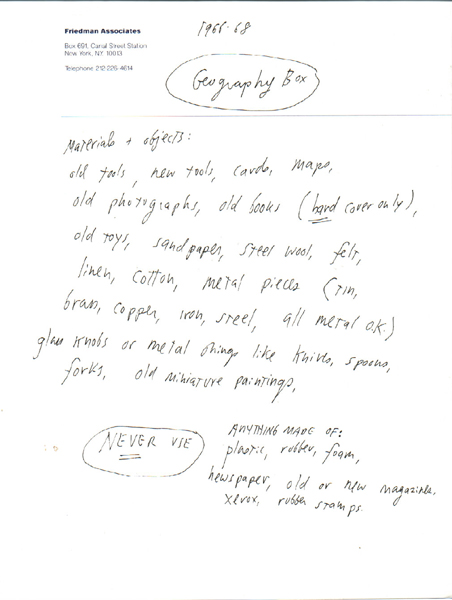 Friedman Associates
Box 691, Canal Street Station
New York, NY 10013
Telephone 212-226-4614
1966-68
Geography Box
Materials + objects:
old tools, new tools, cards, maps,
old photographs, old books (hard cover only),
old toys, sandpaper, steel wool, felt,
linen, cotton, metal pieces (tin,
brass, copper, iron, steel, all metal O.K.)
glass knobs or metal things like knives, spoons,
forks, old miniature paintings,
NEVER USE
ANYTHING MADE OF:
plastic, rubber, foam,
newspaper, old or new magazines,
xerox, rubber stamps.